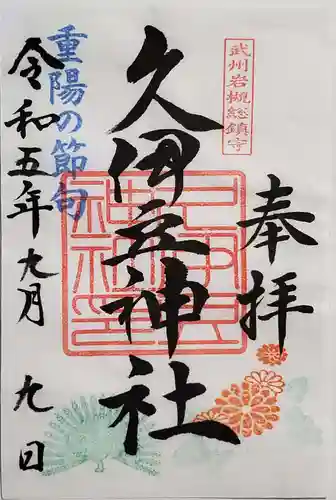 武州岩槻総鎮守
奉拝
久伊豆神社
重陽の節句
令和五年九月九日